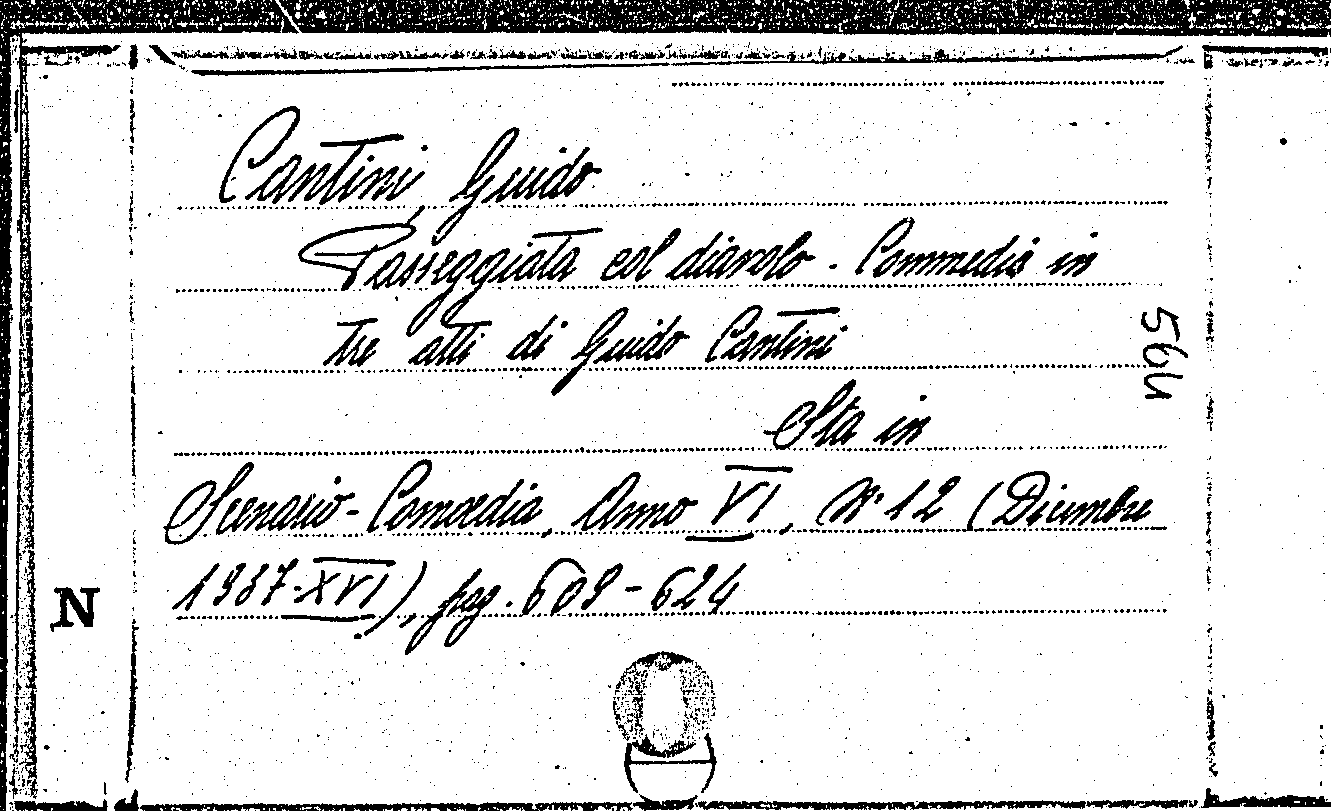 Cantini, Guido
Passeggiata col diavolo. Commedia in
tre atti di Guido Cantini
Sta in
Scenario-Comœdia, Anno VI, N° 12 (Dicembre
1937-XVI), pag. 609-624
564
N